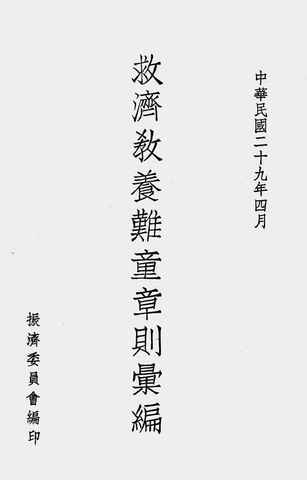 中華民國二十九年四月
救濟教養難童章則彙編
振濟委員會編印